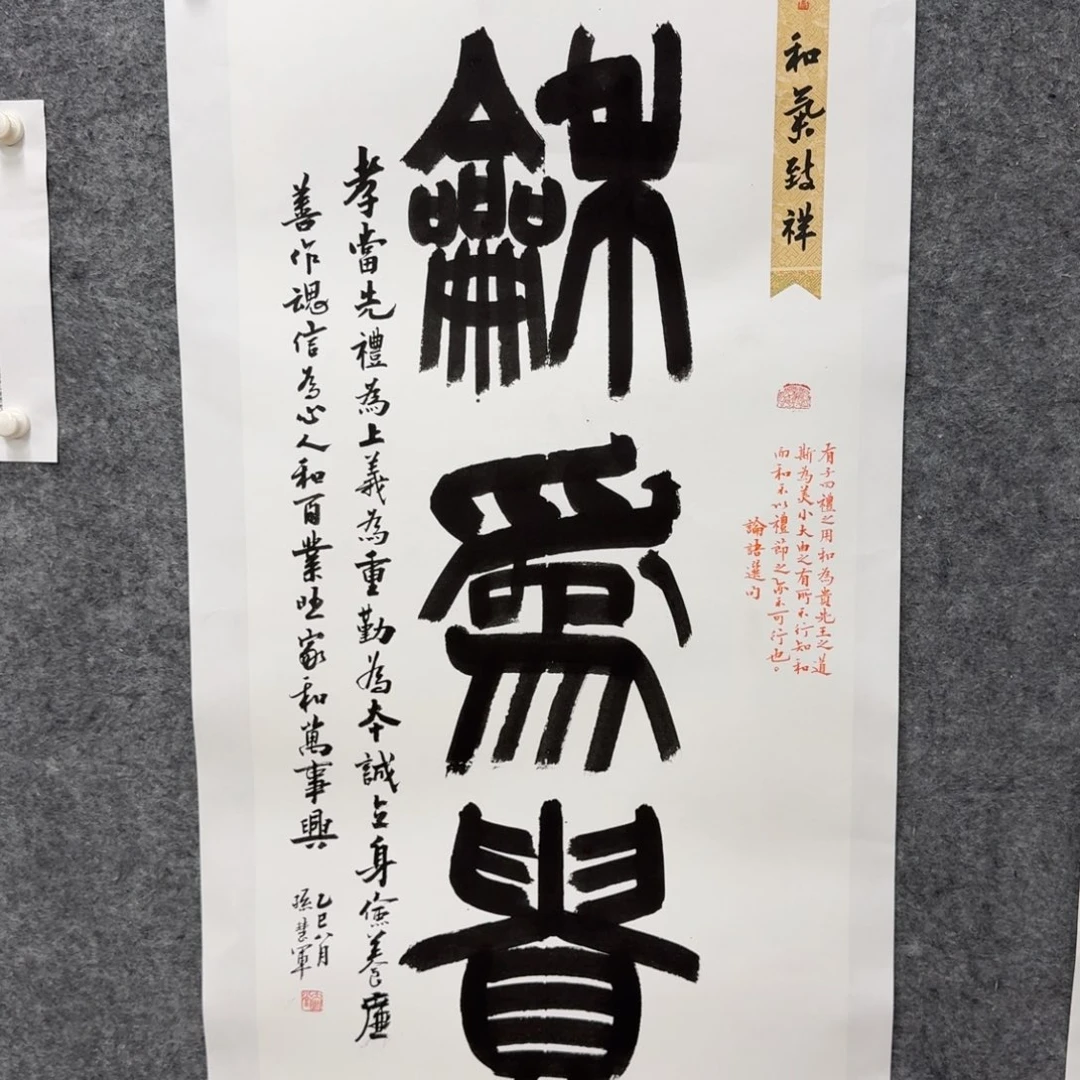 和氣致祥
有子曰禮之用和為貴先王之道
斯為美小大由之有所不行知和
而和不以禮節之亦不可行也。
論語選句
龢為貴
孝當先禮為上義為重勤為本誠立身儉養廉
善作魂信為心人和百業旺家和萬事興
乙巳八月
孫慧軍